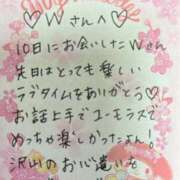 ♡Wさんへ♡
10日にお会いしたWさん
先日はとっても楽しい
ラブタイムをありがとう♡
お話上手でユーモラスで
めっちゃ楽しかったよん!
沢山のお心遣いを